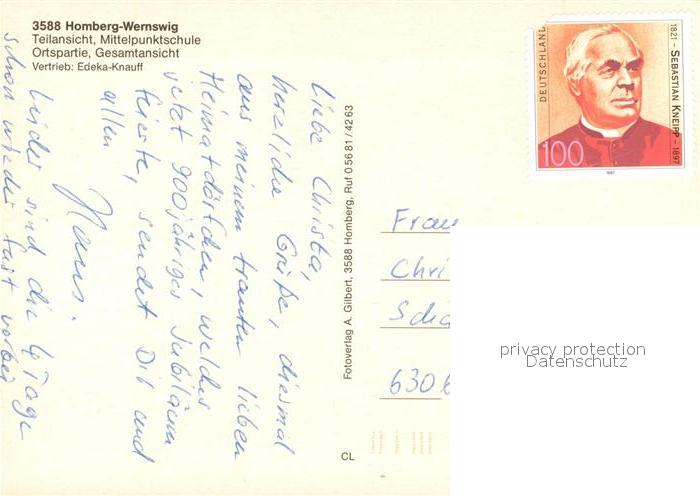 3588 Homberg-Wernswig
Teilansicht, Mittelpunktschule
Ortspartie, Gesamtansicht
Vertrieb: Edeka-Knauff
Liebe Christa,
herzliche Grüße, diesmal
aus meinem trauten lieben
Heimatdörfchen, welches
jetzt 900jähriges Jubiläum
feierte, sendet Dir und
allen
Hans.
Leider sind die 4 Tage
schon wieder fast vorbei
Fotoverlag A. Gilbert, 3588 Homberg, Ruf 05681/4263
CL
DEUTSCHLAND
1821 – SEBASTIAN KNEIPP – 1897
100
1997
Frau
Chri
6306
privacy protection
Datenschutz